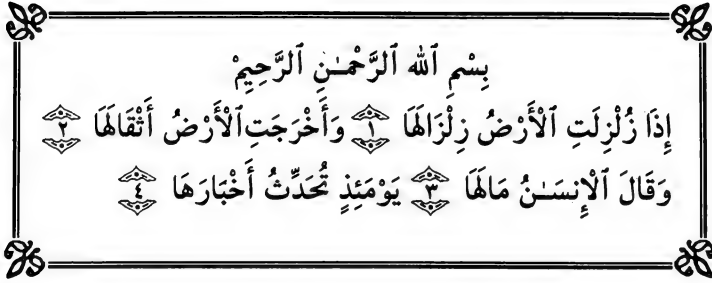 بِسْمِ ٱللهِ ٱلرَّحْمَـٰنِ ٱلرَّحِيمِْ
إِذَا زُلْزِلَتِ ٱلْأَرْضُ زِلْزَالَهَا ﴿١﴾ وَأَخْرَجَتِ ٱلْأَرْضُ أَثْقَالَهَا ﴿٢﴾
وَقَالَ ٱلْإِنسَـٰنُ مَالَهَا ﴿٣﴾ يَوْمَئِذٍ تُحَدِّثُ أَخْبَارَهَا ﴿٤﴾